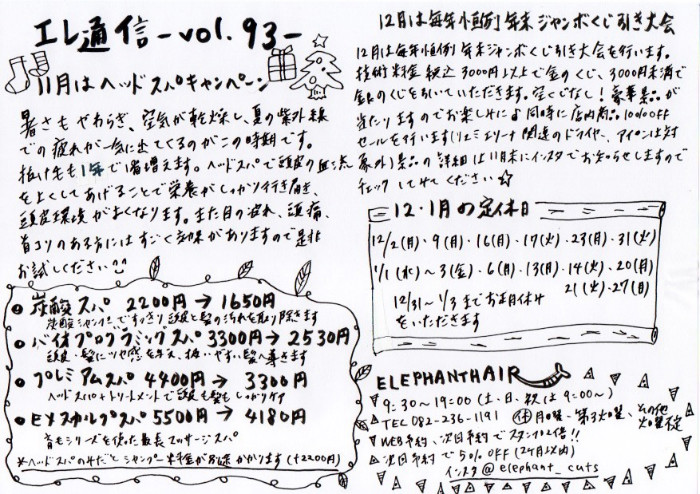 エレ通信-vol.93-
11月はヘッドスパキャンペーン
暑さもやわらぎ、空気が乾燥し、夏の紫外線
での疲れが一気に出てくるのがこの時期です。
抜け毛も1年で1番増えます。ヘッドスパで頭皮の血流
をよくしてあげることで栄養がしっかり行き届き、
頭皮環境がよくなります。また目の疲れ、頭痛、
首コリのある方にはすごく効果がありますので是非
お試しください^^
炭酸スパ 2200円→1650円
炭酸シャンプーですっきり頭皮と髪の汚れを取り除きます
バイオプログラミングスパ 3300円→2530円
頭皮・髪にツヤ感を与え、扱いやすい髪へ導きます
プレミアムスパ 4400円→3300円
ヘッドスパ+トリートメントで頭も髪もしっかりケア
EXスカルプスパ 5500円→4180円
育毛シリーズを使った最長マッサージスパ
※ヘッドスパのみだとシャンプー料金が別途かかります(+2200円)
12月は毎年恒例 年末ジャンボくじ引き大会
12月は毎年恒例 年末ジャンボくじ引き大会を行います。
技術料金 税込3000円以上で金のくじ、3000円未満で
銀のくじを引いていただきます。空くじなし!豪華景品が
当たりますのでお楽しみに♪同時に店内商品10%OFF
セールを行います(リュミエリーナ関連のドライヤー、アイロンは対
象外)景品の詳細は11月末にインスタでお知らせしますので
チェックしてみてください☆
12・1月の定休日
12/2(月)・9(月)・16(月)・17(火)・23(月)・31(火)
1/1(水)〜3(金)・6(月)・13(月)・14(火)・20(月)
21(火)・27(月)
12/31〜1/3までお正月休み
をいただきます
ELEPHANTHAIR
9:30〜19:00(土・日、祝は9:00〜)
TEL 082-236-1191 休 月曜・第3火曜、その他火曜不定
WEB予約、次回予約でスタンプ2倍!!
次回予約で50%OFF(2ヶ月以内)
インスタ@elephant_cuts